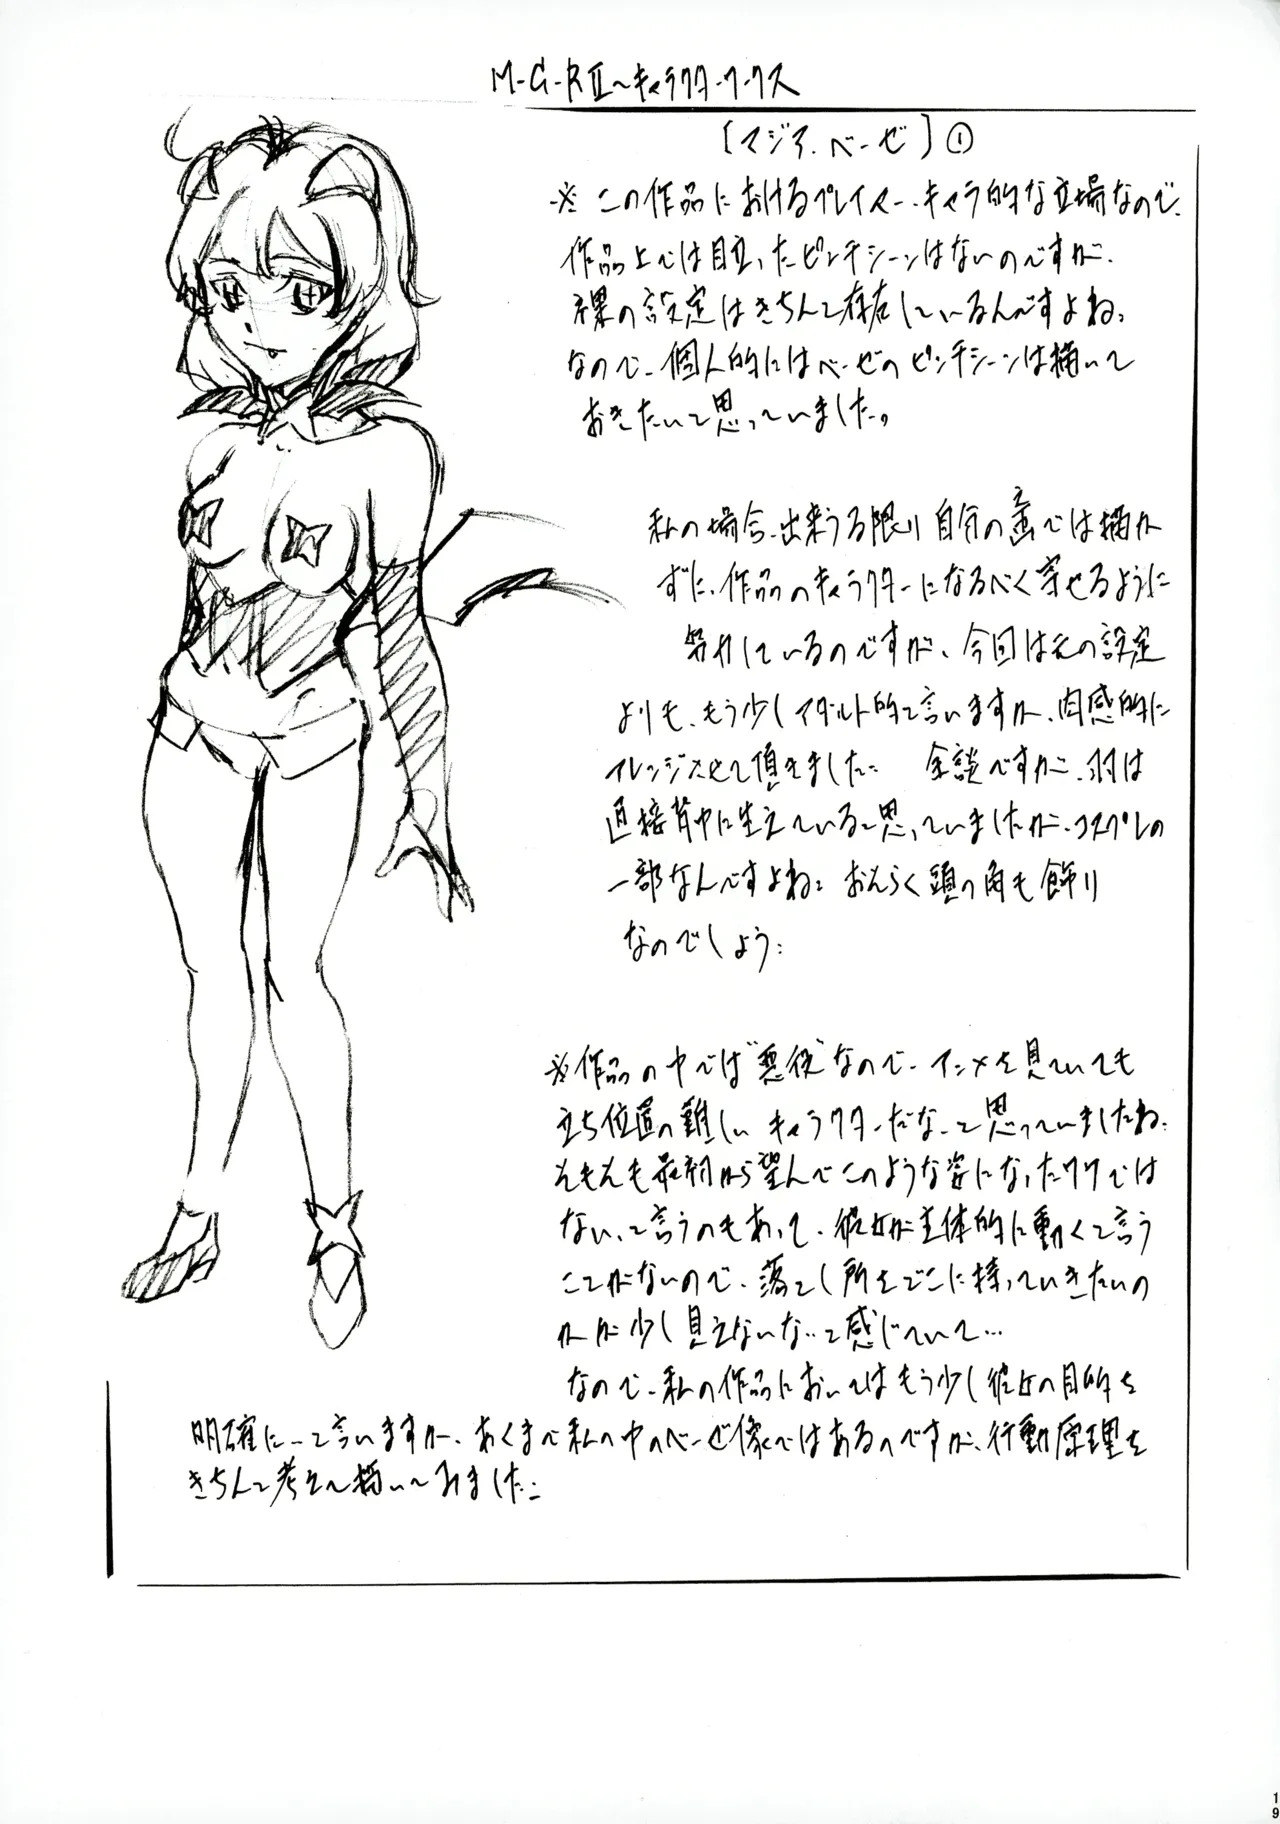 M-G-RⅡ～キャラクターワークス
[マジア・ベーゼ]①
※この作品におけるプレイヤー・キャラ的な立場なので、
作品上では目立ったピンチシーンはないのですが、
裸の設定はきちんと存在しているんですよね:
なので、個人的にはベーゼのピンチシーンは描いて
おきたいと思っていました。
私の場合、出来うる限り自分の画では描か
ずに、作品のキャラクターになるべく寄せるように
努力しているのですが、今回は元の設定
よりも、もう少しアダルト的と言いますか、肉感的に
アレンジさせて頂きました: 余談ですが、羽は
直接背中に生えていると思っていましたが、コスプレの
一部なんですよね: おそらく頭の角も飾り
なのでしょう:
※作品の中では"悪役"なので、アニメを見ていても
立ち位置の難しいキャラクターだな、と思っていましたね:
そもそも最初から望んでこのような姿になったワケでは
ない、と言うのもあって、彼女が主体的に動くと言う
ことがないので、落とし所をどこに持っていきたいの
かが少し見えないな、と感じていて…
なので、私の作品においてはもう少し彼女の目的を
明確に…と言いますか、あくまで私の中のベーゼ像ではあるのですが、行動原理を
きちんと考えて描いてみました:
19